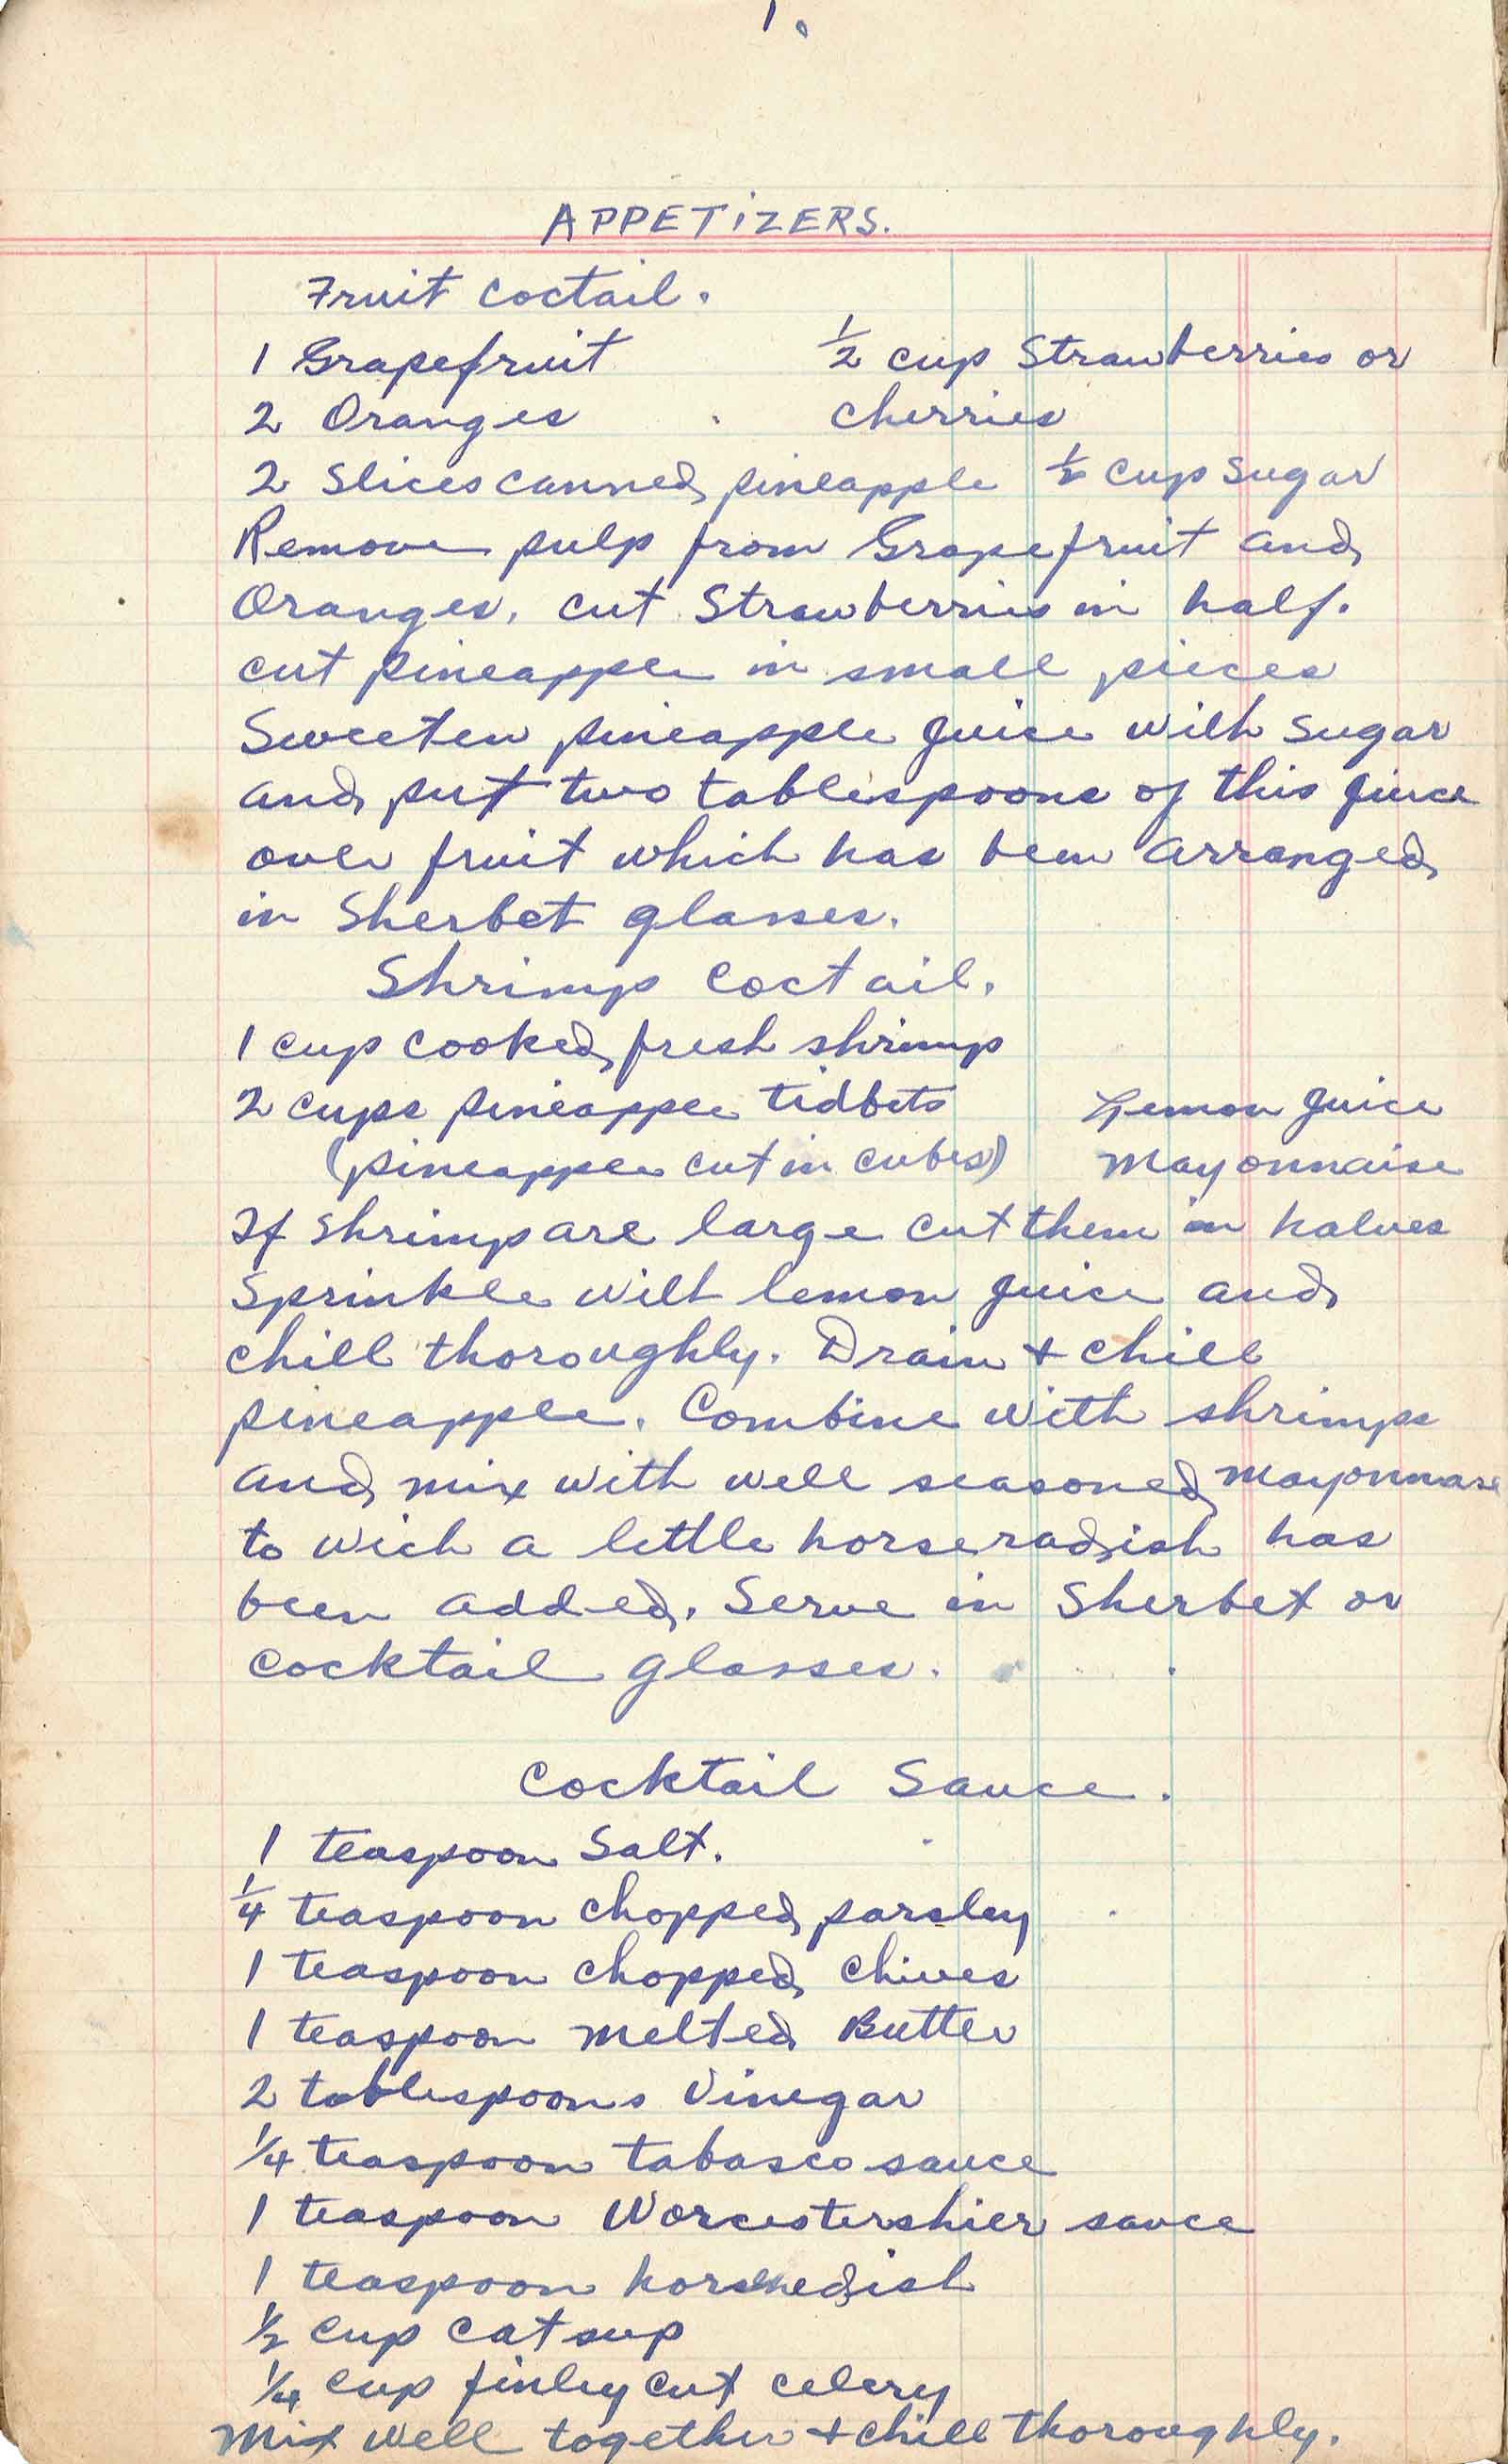 1.
APPETIZERS.
Fruit Coctail.
1 Grapefruit ½ cup Strawberries or
2 Oranges Cherries
2 Slices canned pineapple ½ cup sugar
Remove pulp from Grapefruit and
Oranges. cut Strawberries in half.
cut pineapple in small pieces
Sweeten pineapple juice with sugar
and put two tablespoons of this juice
over fruit which has been arranged
in Sherbet glasses.
Shrimp Coctail.
1 cup cooked fresh shrimp
2 cups pineapple tidbits Lemon juice
(pineapple cut in cubes) Mayonnaise
If shrimp are large cut them in halves
Sprinkle with lemon juice and
chill thoroughly. Drain + chill
pineapple. Combine with shrimps
and mix with well seasoned mayonnase
to wich a little horseradish has
been added. Serve in Sherbet or
cocktail glasses.
Cocktail Sauce.
1 teaspoon Salt.
¼ teaspoon chopped parsley
1 teaspoon chopped chives
1 teaspoon melted Butter
2 tablespoons Vinegar
¼ teaspoon tabasco sauce
1 teaspoon Worcestershier sauce
1 teaspoon
½ cup catsup
¼ cup finley cut celery
Mix well together + chill thoroughly.